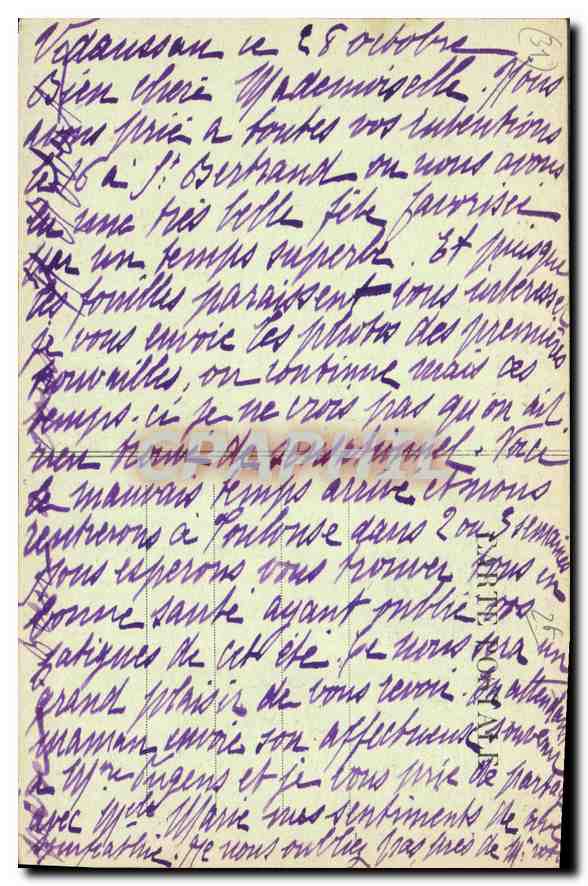 ce 28 octobre
Bien chère Mademoiselle. Nous
avons prié a toutes vos intentions
à St Bertrand ou nous avons
eu une très belle fête favorisée
par un temps superbe. Et puisque
les fouilles paraissent vous interesser
je vous envoie les photos des premières
trouvailles, on continue mais ces
temps-ci je ne crois pas qu'on ait
rien trouvé de sensationnel. Voici
le mauvais temps arrivé et nous
rentrerons à Toulouse dans 2 ou 3 semaines
nous esperons vous trouver tous en
bonne santé ayant oublié vos
fatigues de cet été. Ce nous sera un
grand plaisir de vous revoir. En attendant
maman envoie son affectueux souvenir
à Mme et je vous prie de partager
avec Mlle Marie mes sentiments de
sympathie. Ne nous oubliez pas près de Mr votre
CARTE POSTALE
CPAPHIL